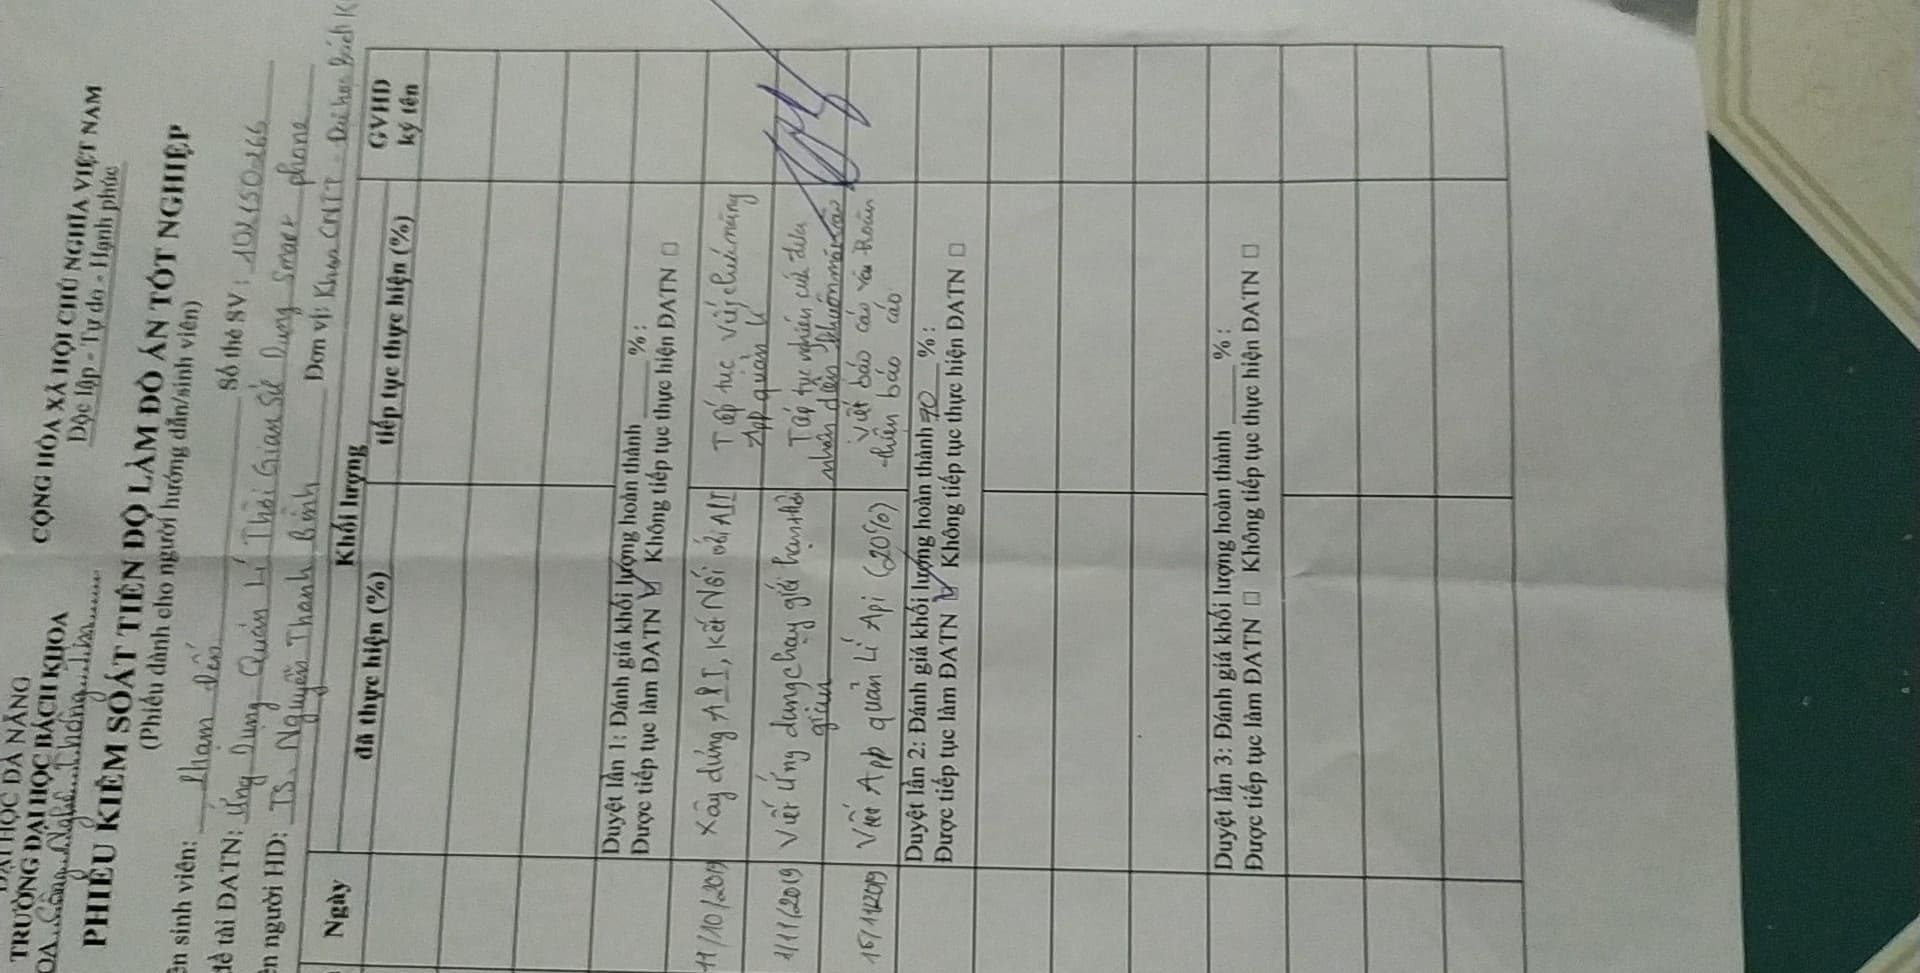 ĐẠI HỌC ĐÀ NẴNG
TRƯỜNG ĐẠI HỌC BÁCH KHOA
OA Công Nghệ Thông Tin
CỘNG HÒA XÃ HỘI CHỦ NGHĨA VIỆT NAM
Độc lập - Tự do - Hạnh phúc
PHIẾU KIỂM SOÁT TIẾN ĐỘ LÀM ĐỒ ÁN TỐT NGHIỆP
(Phiếu dành cho người hướng dẫn/sinh viên)
ên sinh viên: Phạm Đến Số thẻ SV: 102150266
đề tài ĐATN: Ứng Dụng Quản Lí Thời Gian Sử Dụng Smart phone
ên người HD: TS. Nguyễn Thanh Bình Đơn vị: Khoa CNTT - Đại học Bách K
Ngày Khối lượng GVHD
đã thực hiện (%) tiếp tục thực hiện (%) ký tên
Duyệt lần 1: Đánh giá khối lượng hoàn thành ____ %:
Được tiếp tục làm ĐATN ☑ Không tiếp tục thực hiện ĐATN ☐
11/10/2019 Xây dựng API, Kết Nối với API Tiếp tục viết chức năng
App quản lí
1/11/2019 Viết Ứng dụng chạy giới hạn thời Tiếp tục nghiên cứu đưa
gian nhận diện khuôn mặt vào
15/11/2019 Viết App quản Lí Api (20%) Viết báo cáo và hoàn
thiện báo cáo
Duyệt lần 2: Đánh giá khối lượng hoàn thành 70 %:
Được tiếp tục làm ĐATN ☑ Không tiếp tục thực hiện ĐATN ☐
Duyệt lần 3: Đánh giá khối lượng hoàn thành ____ %:
Được tiếp tục làm ĐATN ☐ Không tiếp tục thực hiện ĐATN ☐